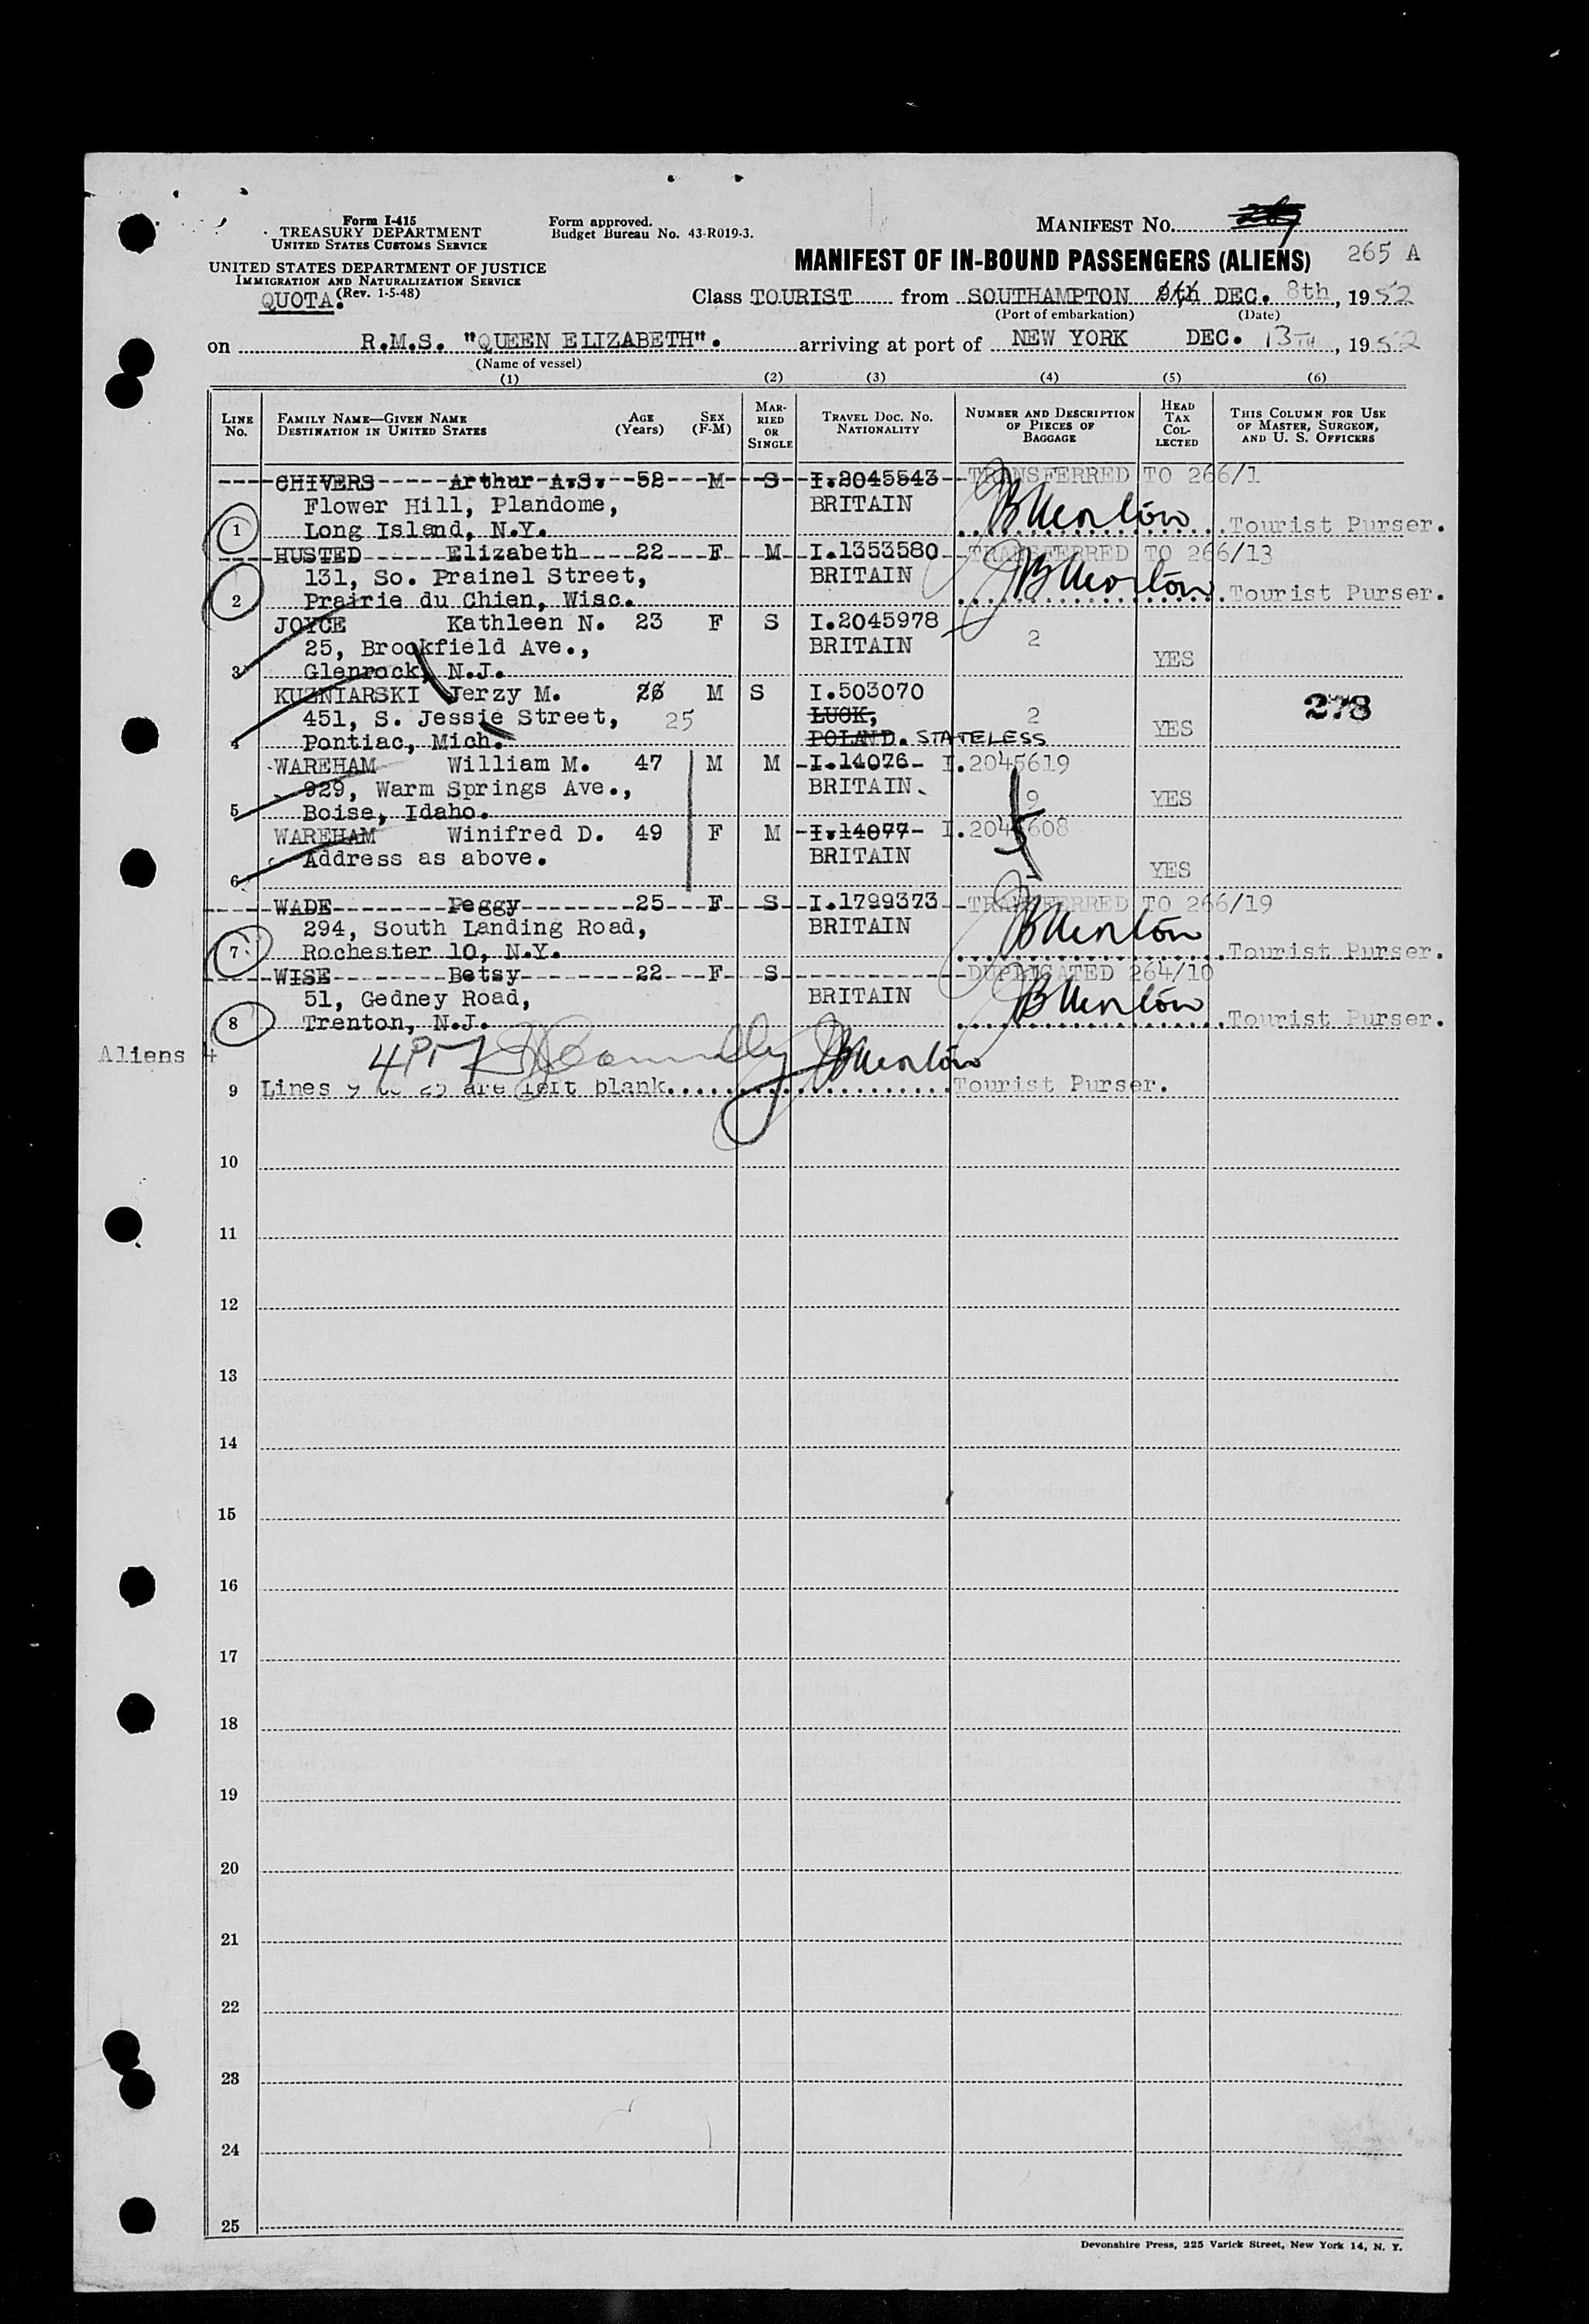 Form I-415
TREASURY DEPARTMENT
UNITED STATES CUSTOMS SERVICE
UNITED STATES DEPARTMENT OF JUSTICE
IMMIGRATION AND NATURALIZATION SERVICE
(Rev. 1-5-48)
QUOTA.
Form approved.
Budget Bureau No. 43-R019-3.
MANIFEST NO.
MANIFEST OF IN-BOUND PASSENGERS (ALIENS) 265 A
Class TOURIST from SOUTHAMPTON DEC. 8th, 1952
(Port of embarkation) (Date)
on R.M.S. "QUEEN ELIZABETH". arriving at port of NEW YORK DEC. 13TH, 1952
(Name of vessel)
(1) (2) (3) (4) (5) (6)
LINE No. FAMILY NAME—GIVEN NAME DESTINATION IN UNITED STATES AGE (Years) SEX (F-M) MARRIED OR SINGLE TRAVEL DOC. NO. NATIONALITY NUMBER AND DESCRIPTION OF PIECES OF BAGGAGE HEAD TAX COLLECTED THIS COLUMN FOR USE OF MASTER, SURGEON, AND U. S. OFFICERS
CHIVERS Arthur A.S. 52 M S I.2045543 TRANSFERRED TO 266/1
Flower Hill, Plandome, BRITAIN
1 Long Island, N.Y. Tourist Purser.
HUSTED Elizabeth 22 F M I.1353580 TRANSFERRED TO 266/13
131, So. Prainel Street, BRITAIN
2 Prairie du Chien, Wisc. Tourist Purser.
JOYCE Kathleen N. 23 F S I.2045978
25, Brookfield Ave., BRITAIN 2
3 Glenrock, N.J. YES
KUZNIARSKI Jerzy M. 26 M S I.503070 278
451, S. Jessie Street, 25 LUCK, 2
4 Pontiac, Mich. POLAND. STATELESS YES
WAREHAM William M. 47 M M I.14076 I.2045619
929, Warm Springs Ave., BRITAIN. 9
5 Boise, Idaho. YES
WAREHAM Winifred D. 49 F M I.14077 I.2045608
Address as above. BRITAIN
6 YES
WADE Peggy 25 F S I.1799373 TRANSFERRED TO 266/19
294, South Landing Road, BRITAIN
7 Rochester 10, N.Y. Tourist Purser.
WISE Betsy 22 F S DUPLICATED 264/10
51, Gedney Road, BRITAIN
8 Trenton, N.J. Tourist Purser.
Aliens 4
9 Lines 9 to 25 are left blank. Tourist Purser.
10
11
12
13
14
15
16
17
18
19
20
21
22
23
24
25
Devonshire Press, 225 Varick Street, New York 14, N. Y.